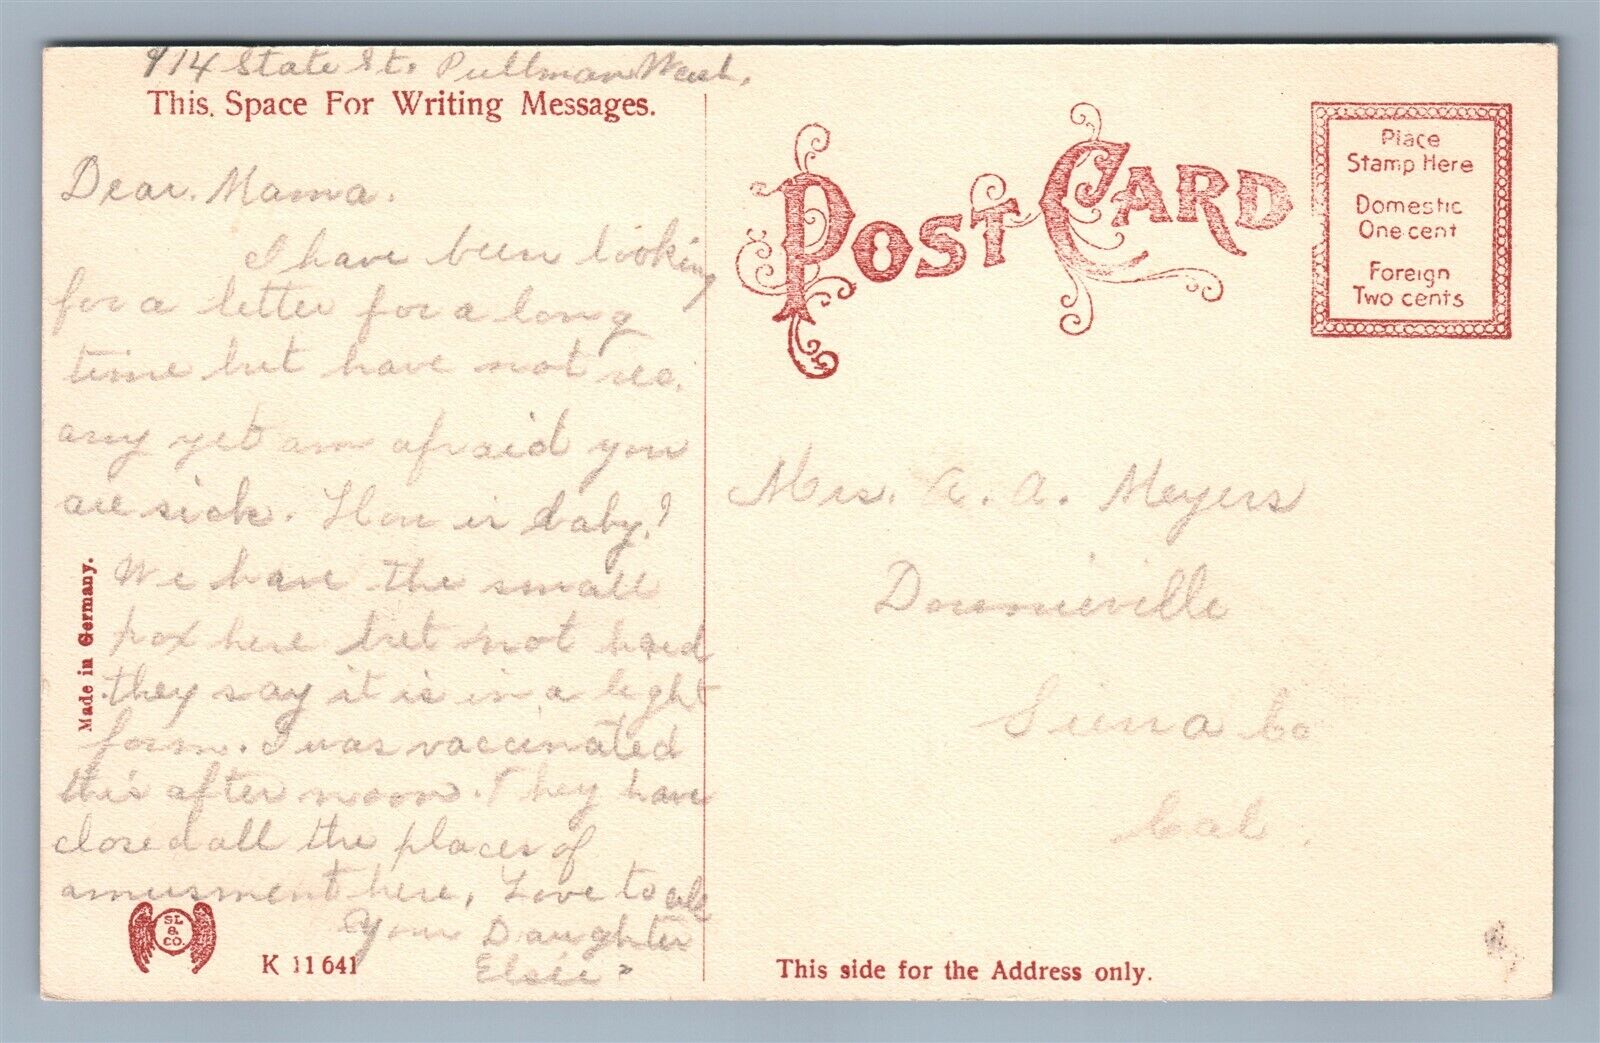 914 State St. Pullman Wash.
This Space For Writing Messages.
Dear Mama.
I have been looking
for a letter for a long
time but have not rec.
any yet am afraid you
are sick. How is baby?
We have the small
pox here but not hard
they say it is in a light
form. I was vaccinated
this after noon. They have
closed all the places of
amusment here. Love to all
Your Daughter
Elsie
Made in Germany.
SL
&
CO.
K 11641
POST CARD
Place
Stamp Here
Domestic
One cent
Foreign
Two cents
Mrs. A. A. Meyers
Downieville
Sierra Co
Cal.
This side for the Address only.